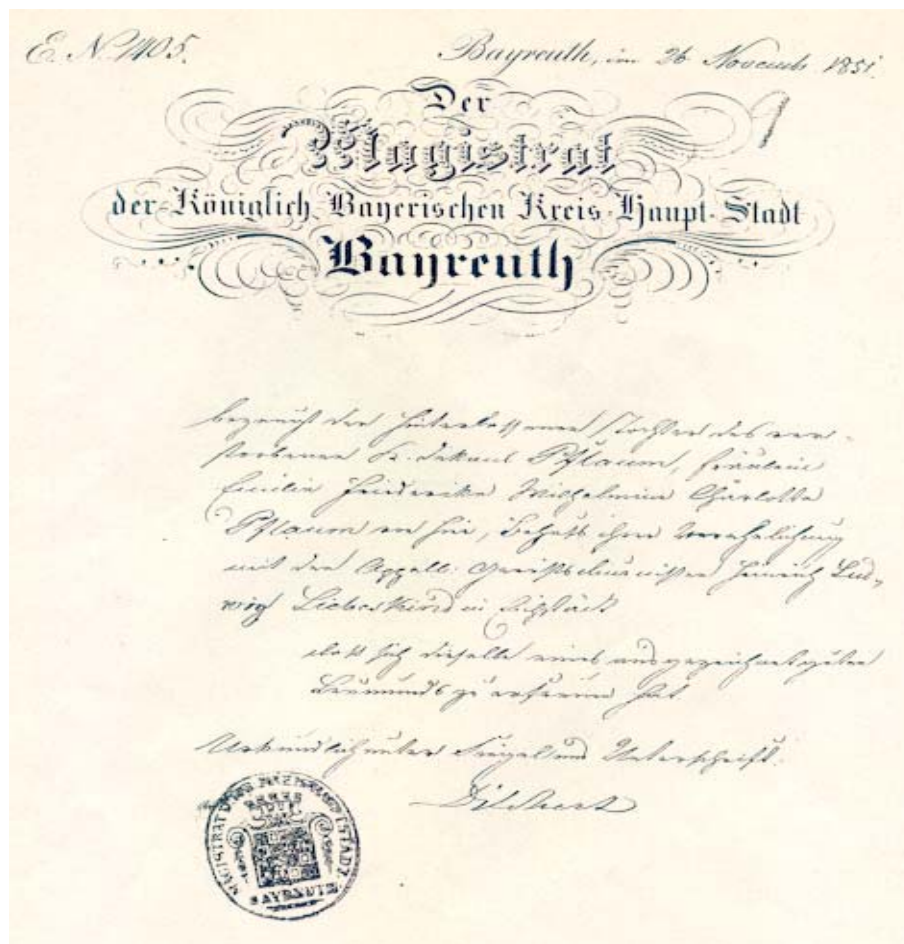 E. N. 1405.
Bayreuth, im 26 Novemb 1851.
Der
Magistrat
der Königlich Bayerischen Kreis-Haupt-Stadt
Bayreuth
bezeugt der hinterlassenen Tochter des ver-
storbenen K. Dekans Pflaum, Fräulein
Emilie Friederike Wilhelmine Charlotte
Pflaum von hier, Behufs ihrer Verehelichung
mit dem Appell. Gerichts Heinrich Lud-
wig Liebeskind in Eichstädt
daß sich dieselbe eines ausgezeichnet guten
Leumunds zu erfreuen hat
Urkundlich unter Siegel und Unterschrift.
MAGISTRAT DER KREISHAUPTSTADT
BAYREUTH